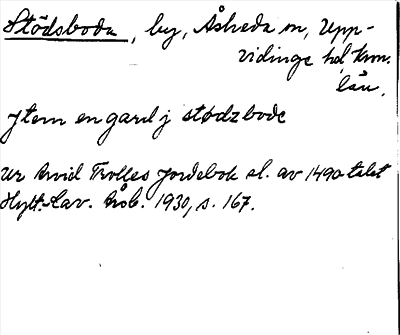 Stödsboda, by, Åsheda sn, Upp-
vidinge hd, Kron.
län.
Jtem en gard j stødzbode
Ur Arvid Trolles Jordebok sl. av 1490-talet
Hylt.-Cav. årsb. 1930, s. 167.